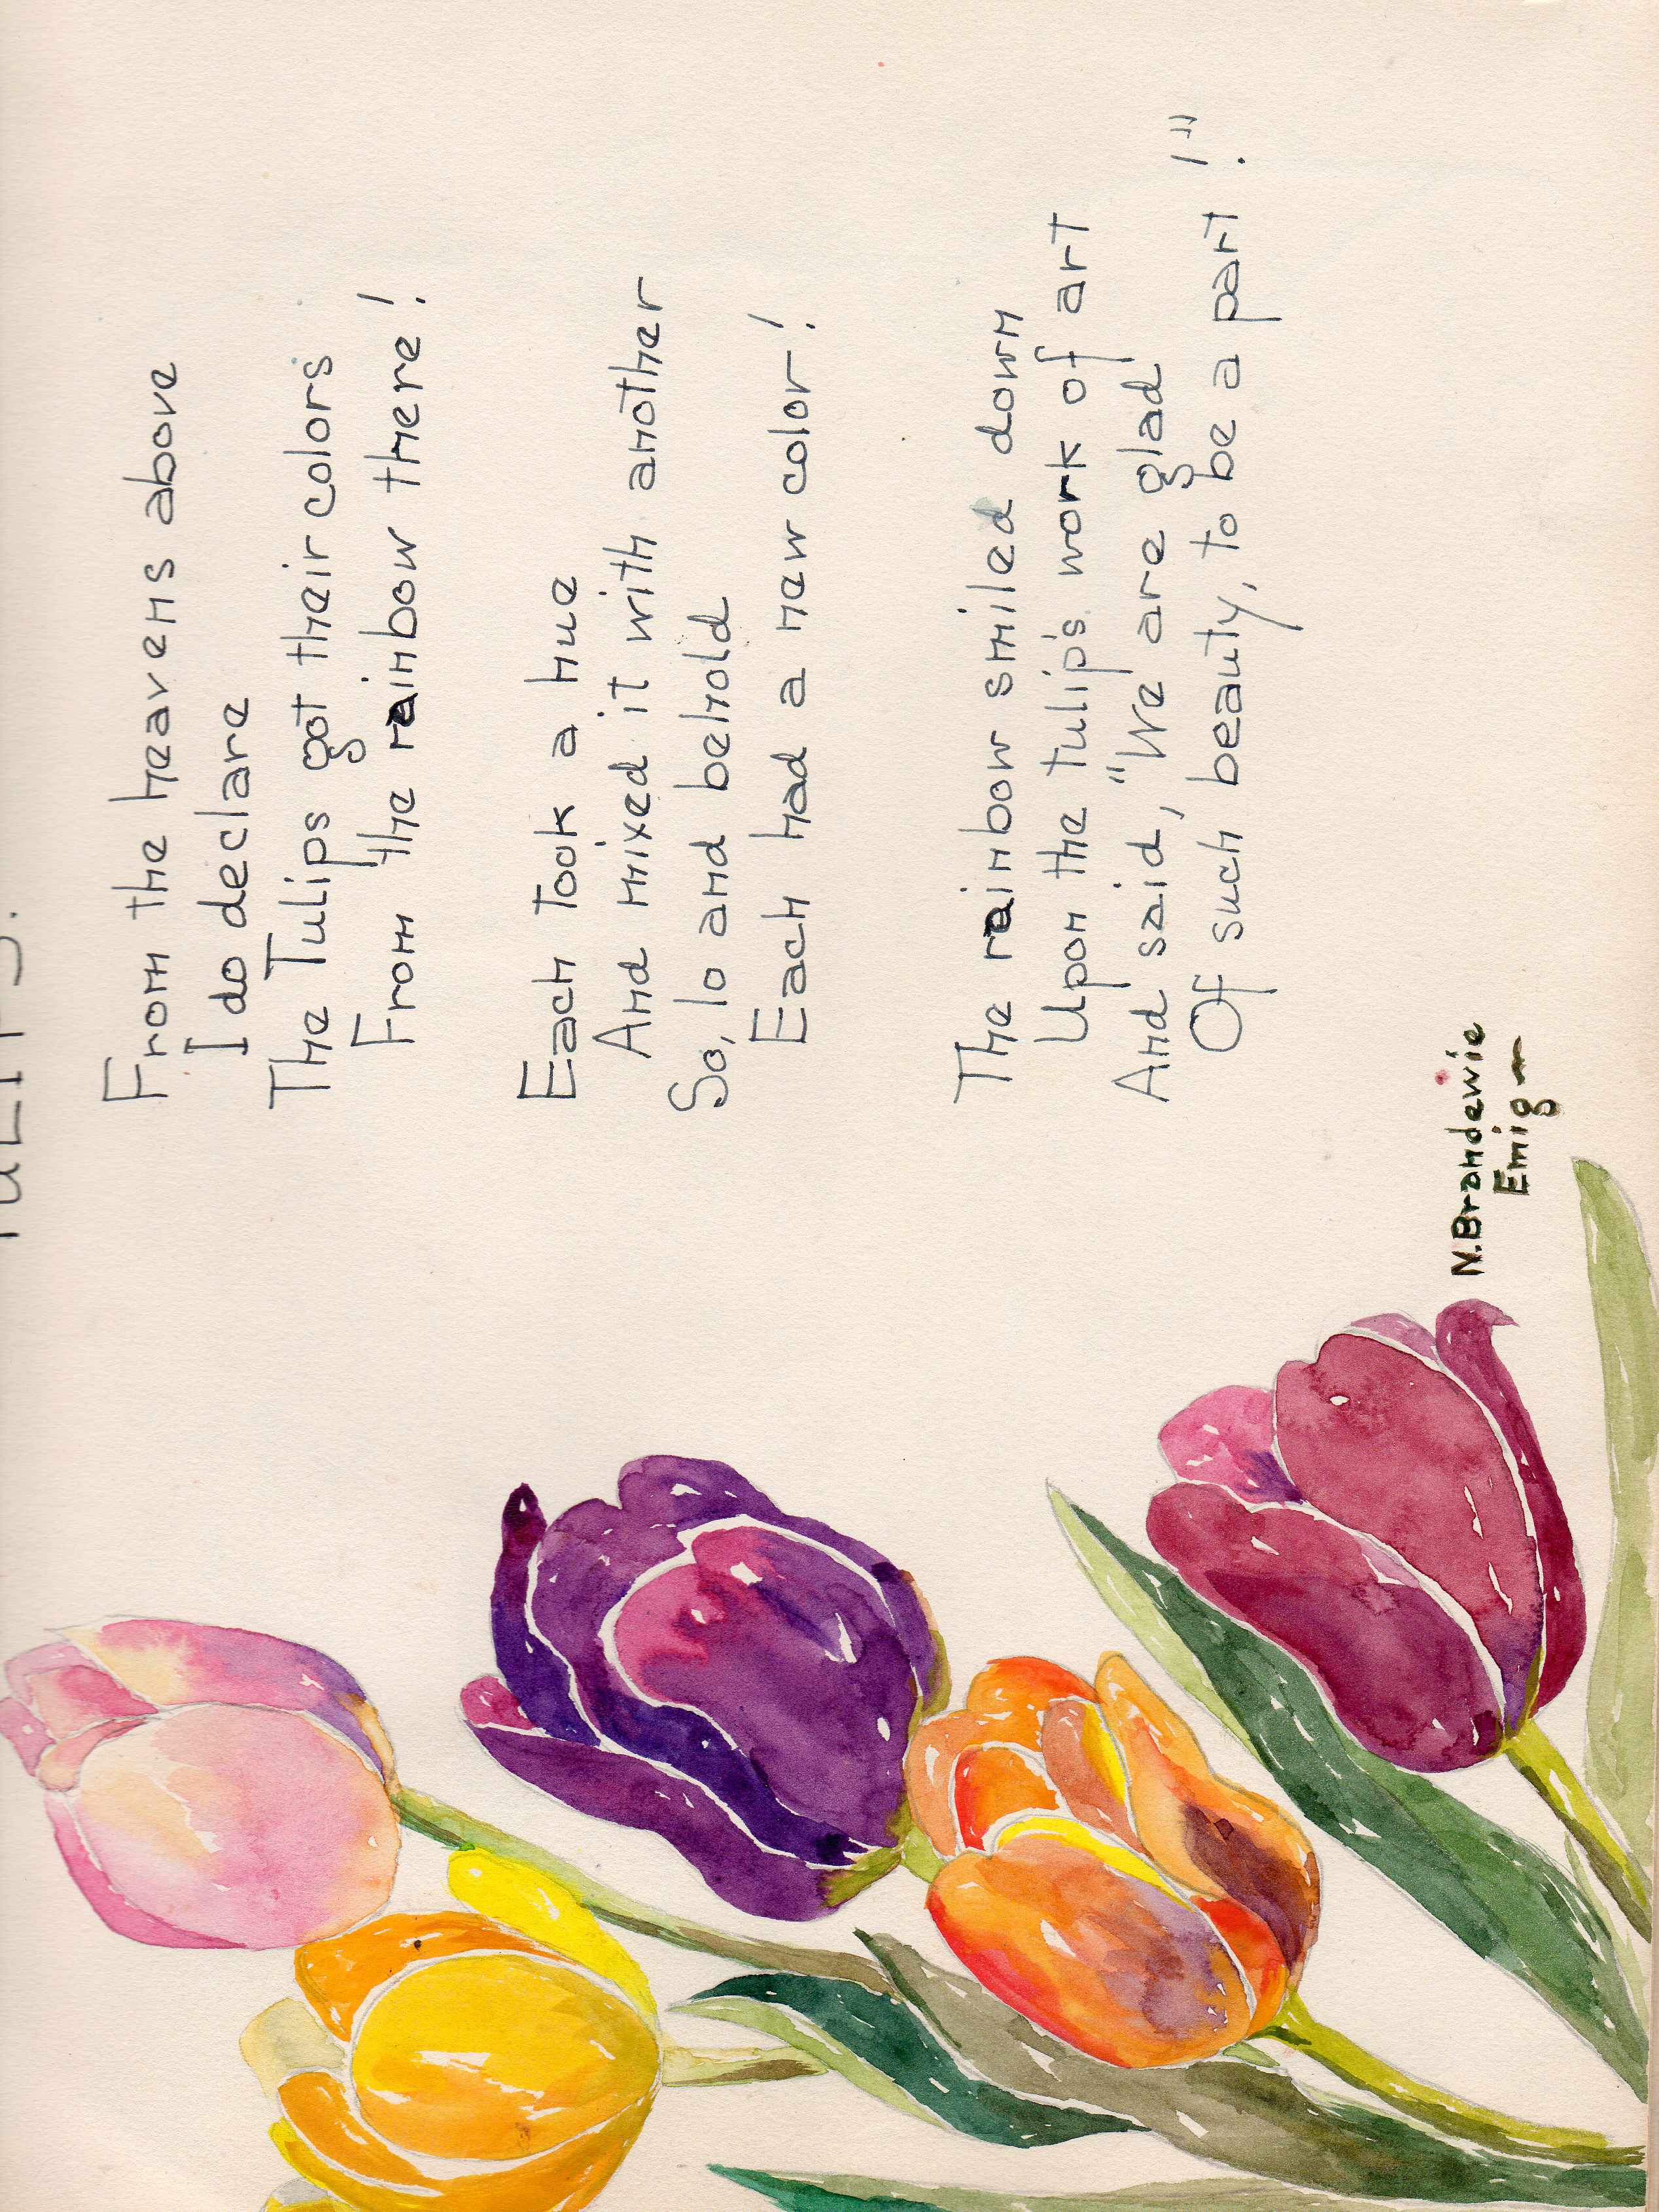 TULIPS.
From the heavens above
I do declare
The Tulips got their colors
From the rainbow there!
Each took a hue
And mixed it with another
So, lo and behold
Each had a new color!
The rainbow smiled down
Upon the tulip's work of art
And said, "We are glad
Of such beauty, to be a part!"
N. Brandewie
Emig